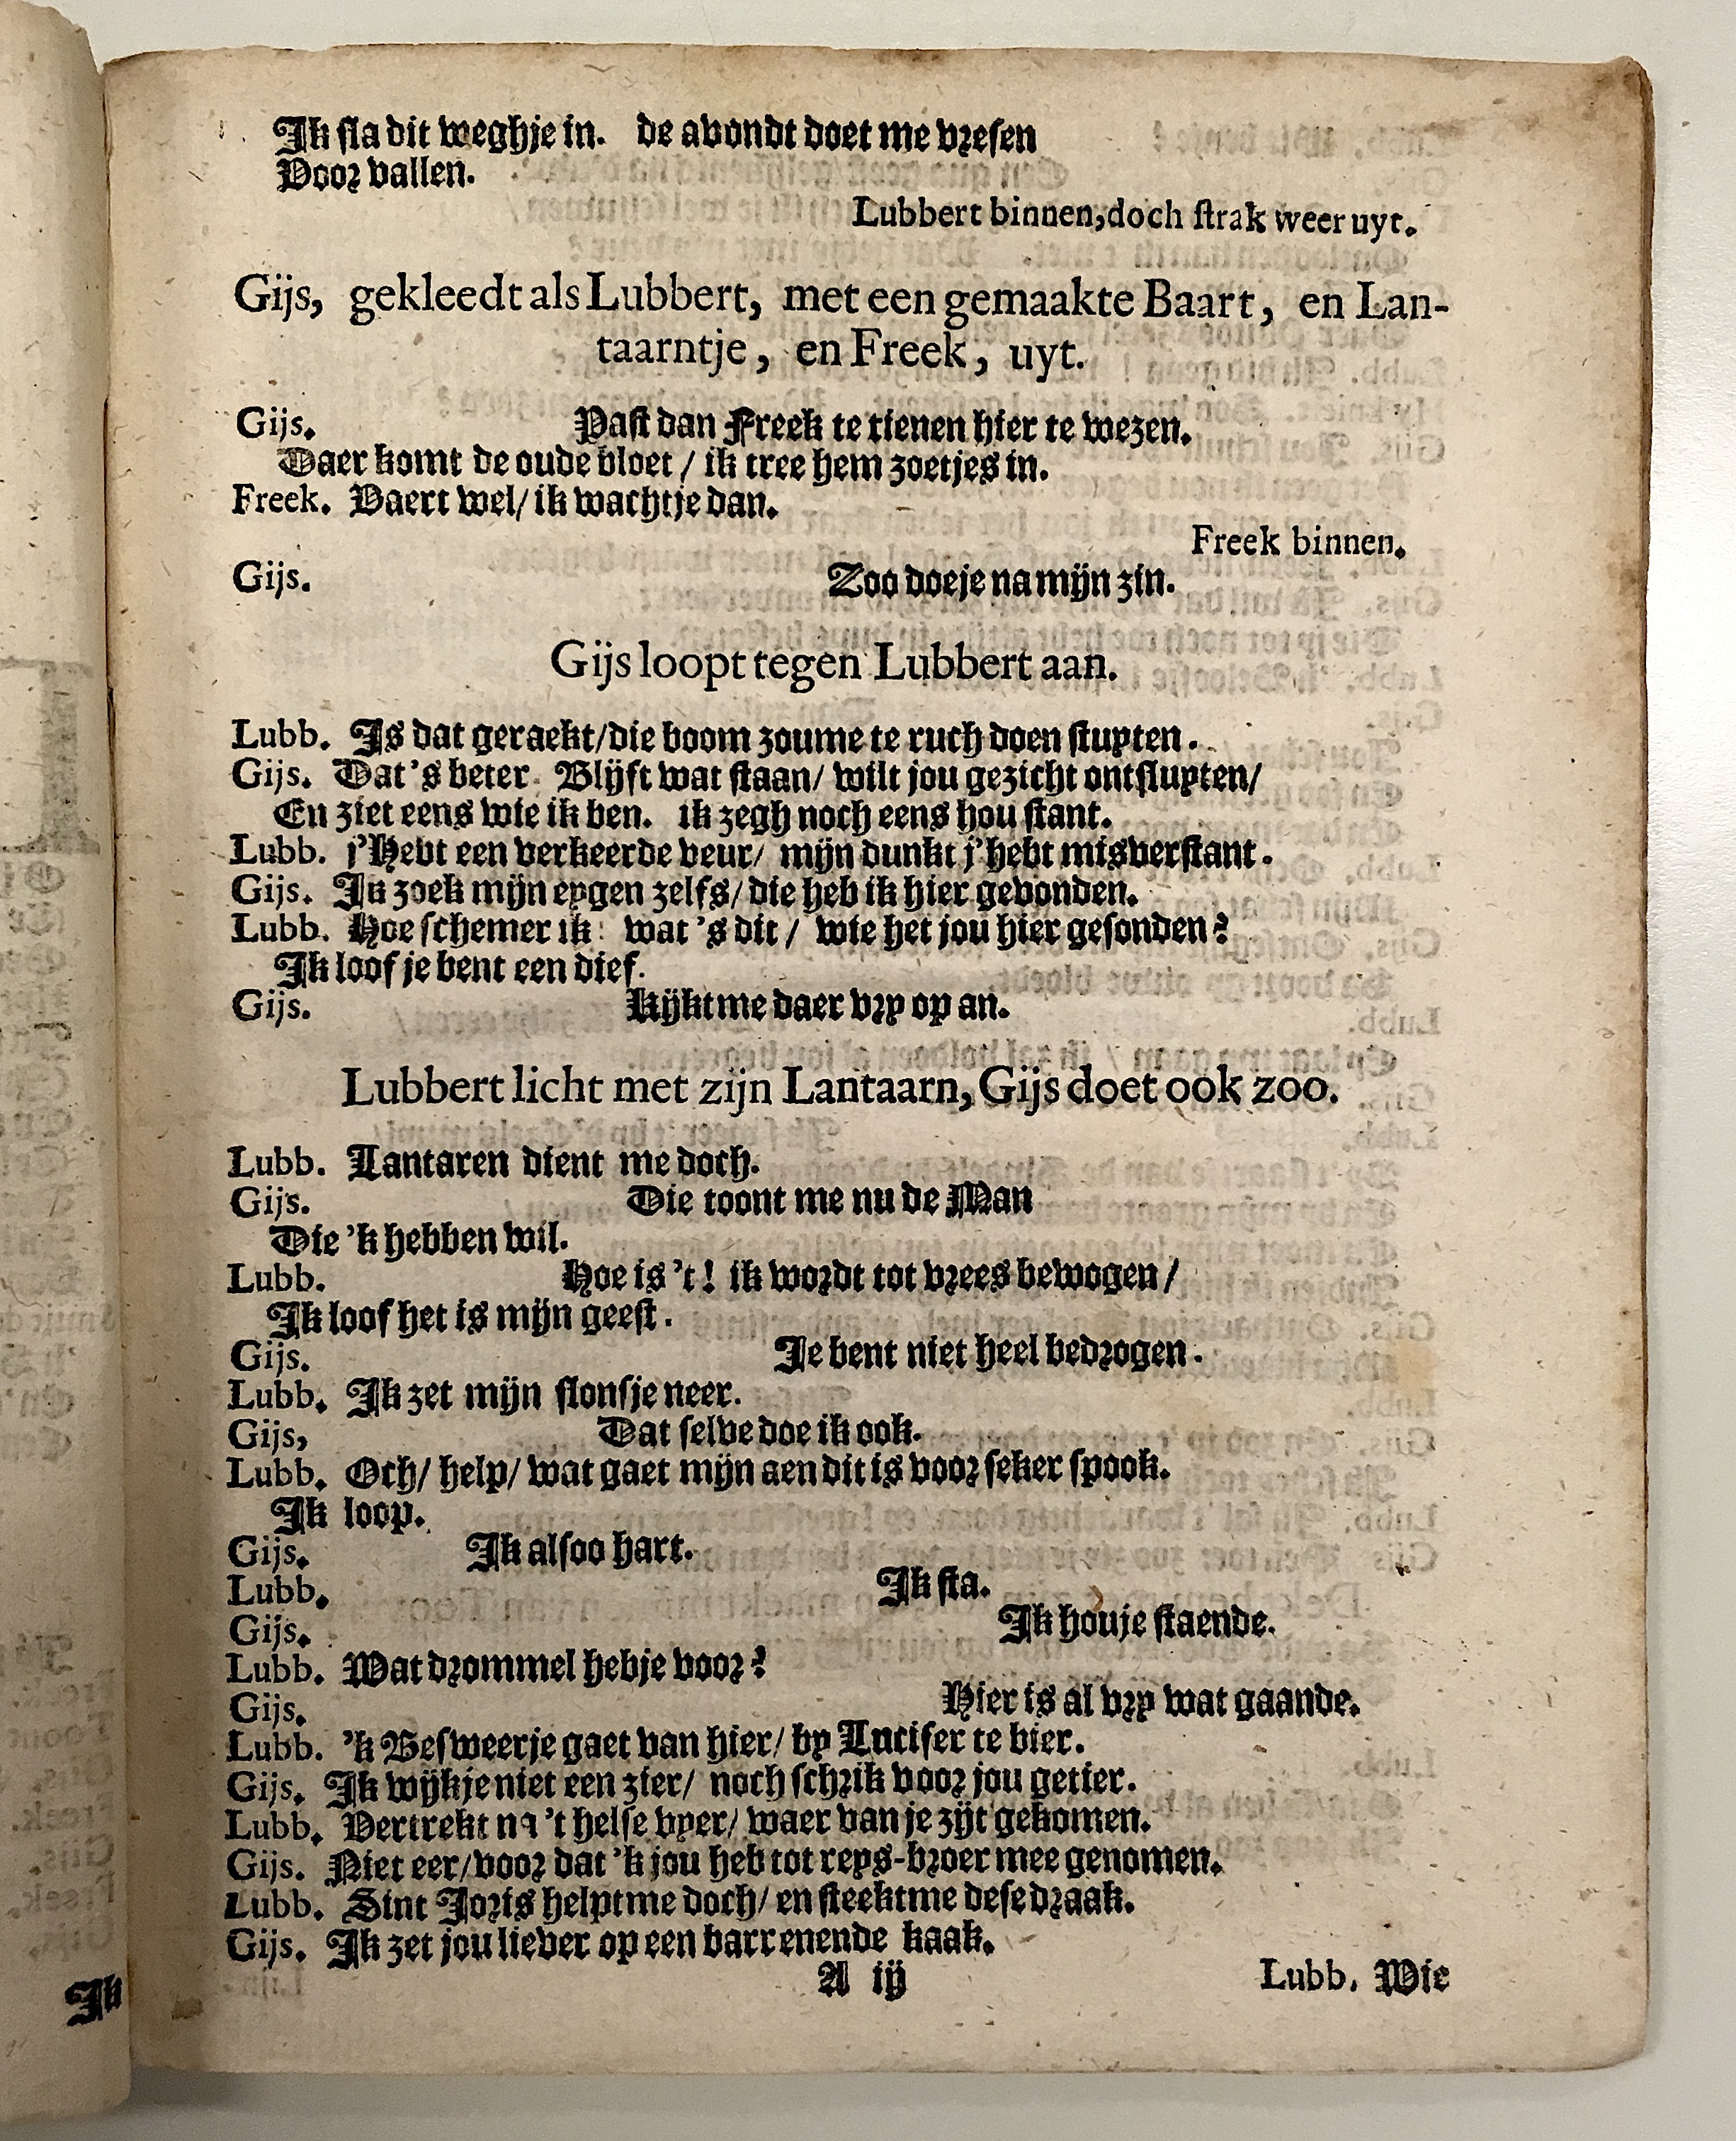 Ik sla dit weghje in. de avondt doet me vresen
Voor vallen.
Lubbert binnen, doch strak weer uyt.
Gijs, gekleedt als Lubbert, met een gemaakte Baart, en Lan-
taarntje, en Freek, uyt.
Gijs. Past dan Freek te tienen hier te wezen.
Daer komt de oude bloet / ik tree hem zoetjes in.
Freek. Vaert wel / ik wacht je dan.
Freek binnen.
Gijs. Zoo doeje na mijn zin.
Gijs loopt tegen Lubbert aan.
Lubb. Is dat geraekt / die boom zoume te ruch doen stuyten.
Gijs. Dat's beter. Blijft wat staan / wilt jou gezicht ontsluyten /
En ziet eens wie ik ben. ik zegh noch eens hou stant.
Lubb. j'Hebt een verkeerde veur / mijn dunkt j'hebt misverstant.
Gijs. Ik zoek mijn eygen zelfs / die heb ik hier gevonden.
Lubb. Hoe schemer ik: wat 's dit / wie het jou hier gesonden?
Ik loof je bent een dief.
Gijs. Kijkt me daer vry op an.
Lubbert licht met zijn Lantaarn, Gijs doet ook zoo.
Lubb. Lantaren dient me doch.
Gijs. Die toont me nu de Man
Die 'k hebben wil.
Lubb. Hoe is 't! ik wordt tot vrees bewogen /
Ik loof het is mijn geest.
Gijs. Je bent niet heel bedrogen.
Lubb. Ik zet mijn slonsje neer.
Gijs, Dat selve doe ik ook.
Lubb. Och / help / wat gaet mijn aen dit is voor seker spook.
Ik loop.
Gijs. Ik alsoo hart.
Lubb. Ik sta.
Gijs. Ik houje staende.
Lubb. Wat drommel hebje voor?
Gijs. Hier is al vry wat gaande.
Lubb. 'k Besweerje gaet van hier / by Lucifer te bier.
Gijs. Ik wijkje niet een zier / noch schrik voor jou getier.
Lubb. Vertrekt na 't helse vyer / waer van je zijt gekomen.
Gijs. Niet eer / voor dat 'k jou heb tot reys-broer mee genomen.
Lubb. Sint Joris helptme doch / en steektme dese draak.
Gijs. Ik zet jou liever op een barrenende kaak.
A ij Lubb. Wie
Ik